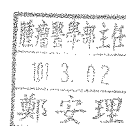 醫學部主任
101 3. 02
鄭安理